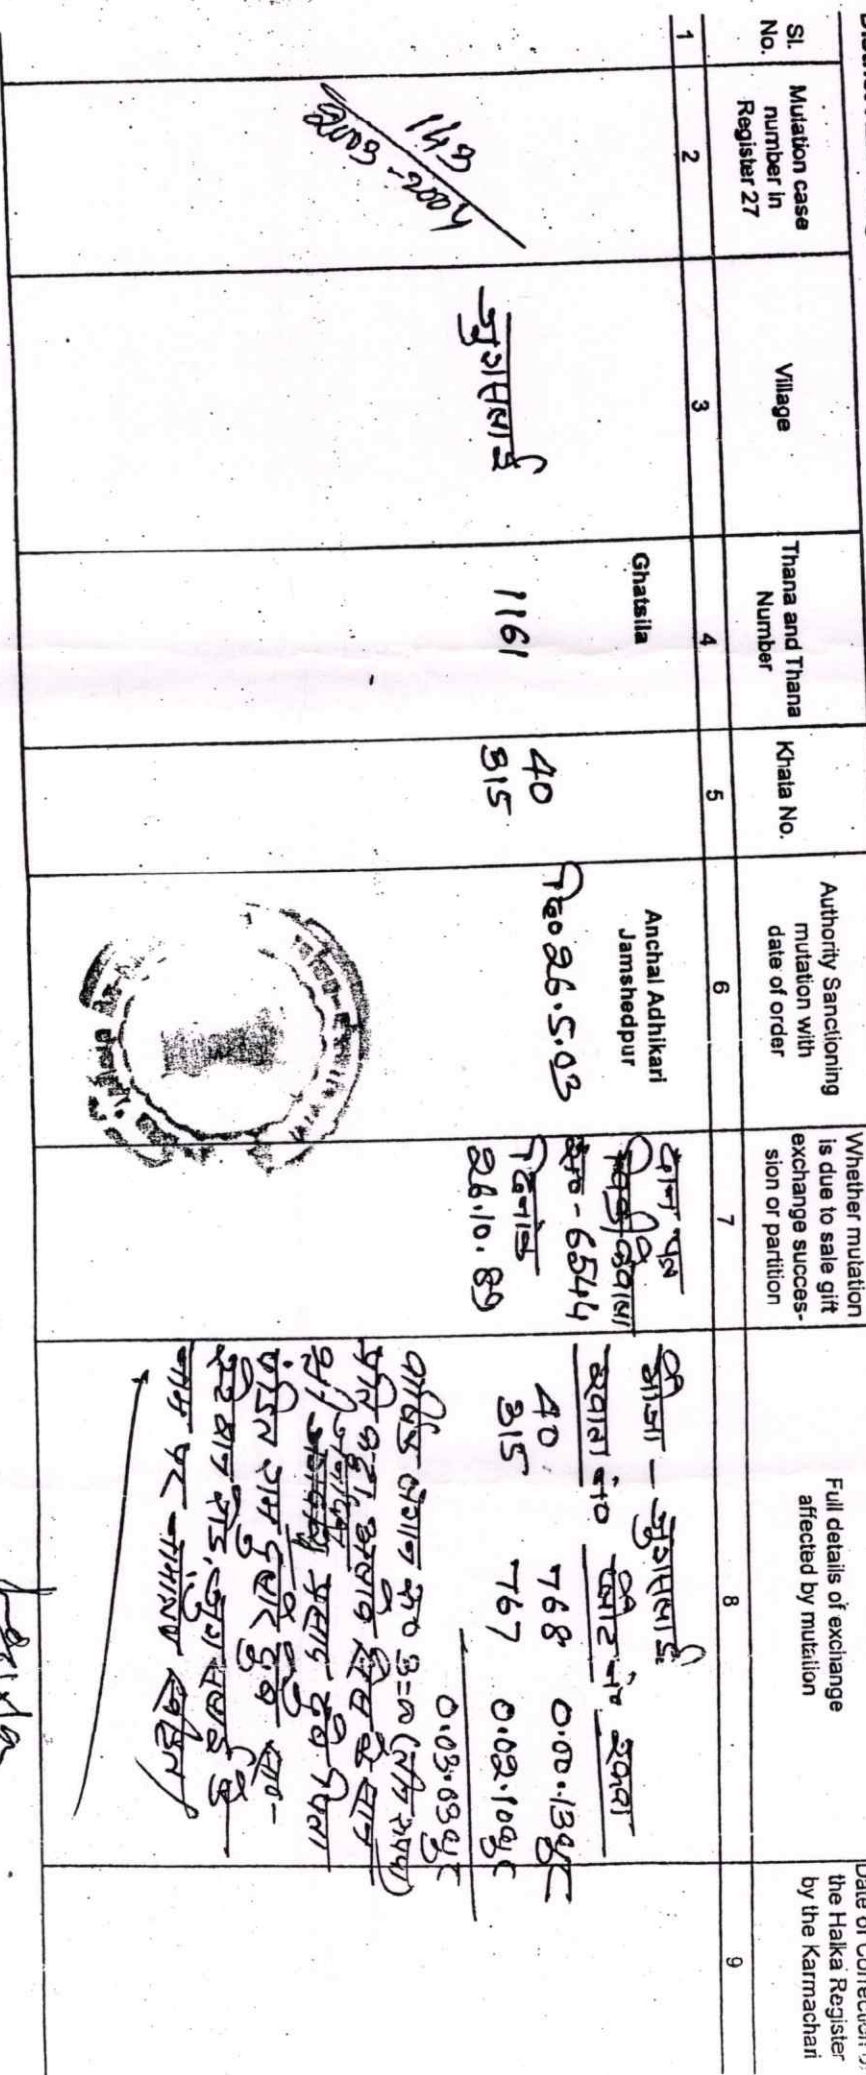 Sl.
No.
Mutation case
number in
Register 27
Village
Thana and Thana
Number
Khata No.
Authority Sanctioning
mutation with
date of order
Whether mutation
is due to sale gift
exchange succes-
sion or partition
Full details of exchange
affected by mutation
the Halka Register
by the Karmachari
1
2
3
4
5
6
7
8
9
641
2002-2003
जुगसलाई
Ghatsila
1161
40
315
Anchal Adhikari
Jamshedpur
दि० 26.5.03
दान पत्र
सं०-6544
दिनांक
26.10.89
मौजा - जुगसलाई
खाता नं० प्लॉट नं० रकवा
40 768
315 767
वार्षिक लगान
प्रति कट्ठा अलावे सेस के साथ
श्री प्रसाद दुबे पिता
पंडित राम दुबे
स्टेशन रोड, जुगसलाई के
नाम पर नामांतरण